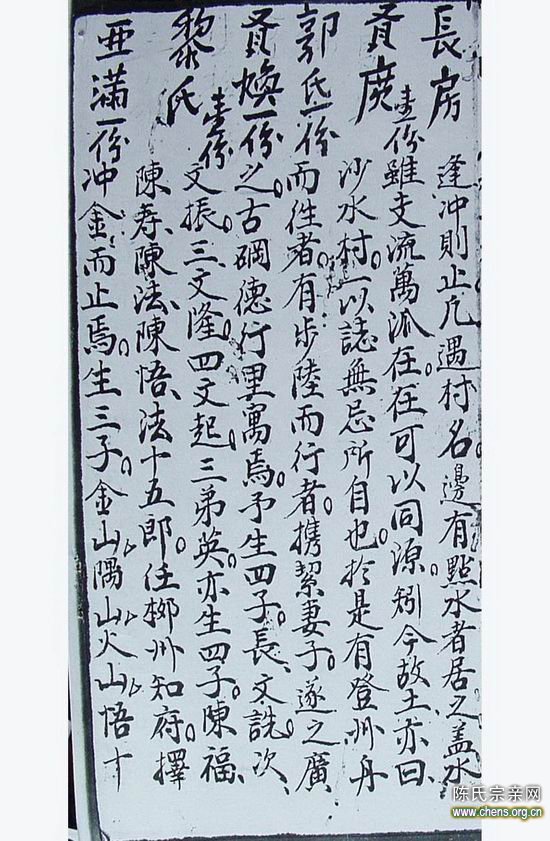 長房
逢冲則止凡遇村名。邊有點水者居之盖水
壹份
雖支流萬派在在可以同源。矧今故土亦曰
貴庹
沙水村。以誌無忌所自也。於是有登州丹
郭氏一份
而徃者。有步陸而行者。携絜妻子。遂之廣
貴煥一份
之。古碙德行里寓焉。予生四子。長、文詵。次、
壹份
文振。三文隆。四文起。三弟英。亦生四子。陳福、
黎氏
陳壽、陳法、陳悟、法十五郎。任郴州知府。擇
亞滿一份
冲金。而止焉。生三子。金山隅山火山悟十
陈氏宗亲网
www.chens.org.cn